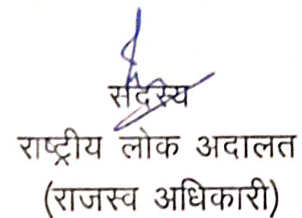 सदस्य
राष्ट्रीय लोक अदालत
(राजस्व अधिकारी)